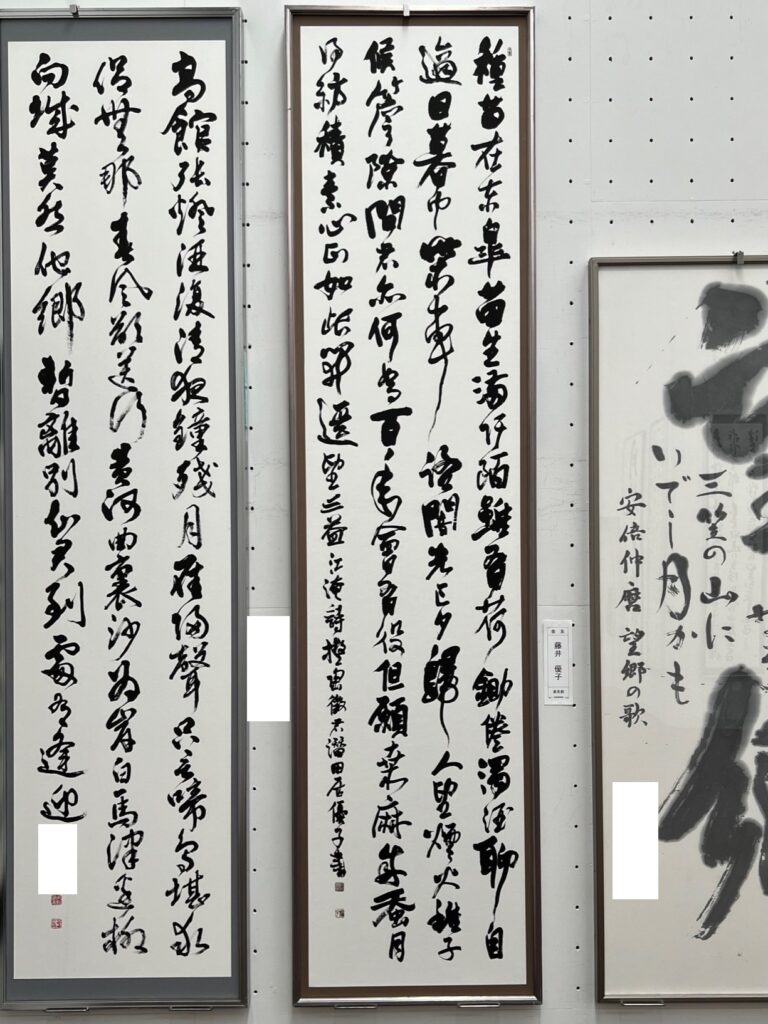 三笠の山に
いでし月かも
安倍仲麿 望郷の歌
藤井 優子
種苗在東皐苗生滿阡陌雖有荷鋤倦濁酒聊自
適日暮巾柴車路闇光已夕歸人望煙火稚子
候簷隙問君亦何為百年會有役但願桒麻成蚕月
得紡績素心正如此開逕望三益 江淹詩擬陶徵君潛田居 優子書
高館張燈酒復清夜鐘殘月雁歸聲只言啼鳥堪求
侶無那春風欲送行黄河曲裏沙為岸白馬津邊柳
向城莫怨他鄉暫離別知君到處有逢迎